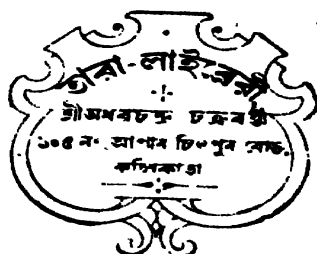 তারা-লাইব্রেরী
শ্রীঅধরচন্দ্র চক্রবর্ত্তী
১০৫ নং আপার চিৎপুর রোড,
কলিকাতা